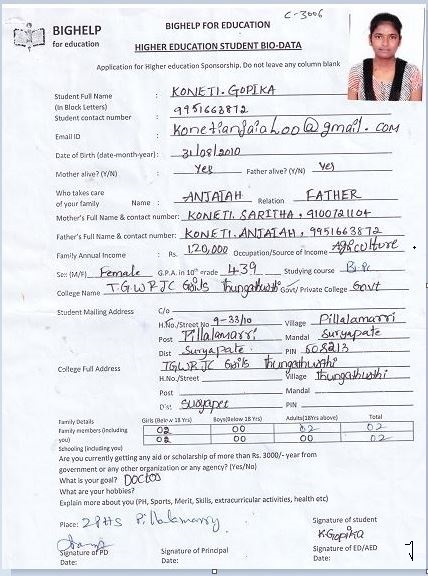 C-3006
BIGHELP
for education
BIGHELP FOR EDUCATION
HIGHER EDUCATION STUDENT BIO-DATA
Application for Higher education Sponsorship. Do not leave any column blank
Student Full Name : KONETI. GOPIKA
(In Block Letters)
Student contact number : 9951663872
Email ID : konetianjaiah00@gmail.com
Date of Birth (date-month-year) : 31/08/2010
Mother alive? (Y/N) : Yes Father alive? (Y/N) Yes
Who takes care
of your family Name : ANJAIAH Relation FATHER
Mother's Full Name & contact number: KONETI. SARITHA, 9100721104
Father's Full Name & contact number: KONETI. ANJAIAH, 9951663872
Family Annual Income : Rs. 120,000 Occupation/Source of Income Agiculture
Sex: (M/F) Female G.P.A. in 10th grade 439 Studying course Bi.P.C
College Name T.G.W.R.JC Girls Thungathurthi Govt/ Private College Govt
Student Mailing Address C/o
H.No./Street No 9-33/10 Village Pillalamarri
Post Pillalamarri Mandal Suryapate
Dist Suryapate PIN 508213
College Full Address TGWRJC Girls thungathurthi
H.No./Street Village thungathurthi
Post Mandal
Dist Suryapet PIN
Family Details Girls (Below 18 Yrs) Boys(Below 18 Yrs) Adults(18Yrs above) Total
Family members (including you) 02 00 02 02
Schooling (including you) 02 00 00 02
Are you currently getting any aid or scholarship of more than Rs. 3000/- year from
government or any other organization or any agency? (Yes/No)
What is your goal? Doctor
What are your hobbies?
Explain more about you (PH, Sports, Merit, Skills, extracurricular activities, health etc)
Place: ZPHS Pillalamarry
Signature of student
K.Gopika
Signature of PD Signature of Principal Signature of ED/AED
Date: Date: